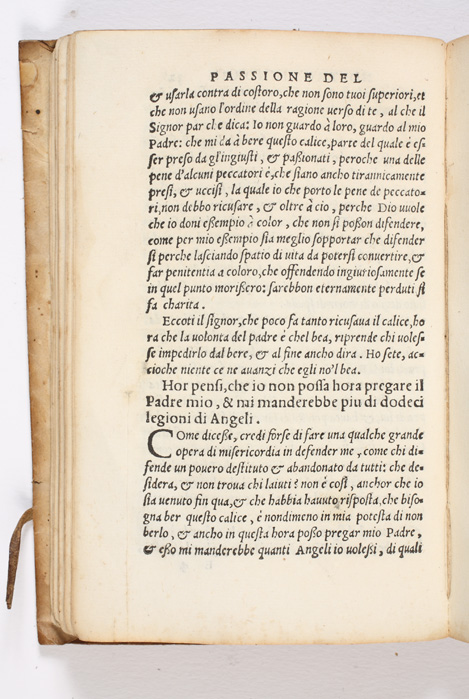 PASSIONE DEL
& usarla contra di costoro, che non sono tuoi superiori, et
che non usano l'ordine della ragione verso di te, al che il
Signor par che dica: Io non guardo à loro, guardo al mio
Padre: che mi dà à bere questo calice, parte del quale è es
ser preso da gl'ingiusti, & passionati, peroche una delle
pene d'alcuni peccatori è, che siano ancho tirannicamente
presi, & uccisi, la quale io che porto le pene de peccato-
ri, non debbo ricusare, & oltre à cio, perche Dio vuole
che io doni essempio à color, che non si posson difendere,
come per mio essempio sia meglio sopportar che difender
si perche lasciando spatio di vita da potersi convertire, &
far penitentia a coloro, che offendendo ingiuriosamente se
in quel punto morissero: sarebbon eternamente perduti si
fa charita.
Eccoti il signor, che poco fa tanto ricusava il calice, ho
ra che la volonta del padre è chel bea, riprende chi voles-
se impedirlo dal bere, & al fine ancho dira. Ho sete, ac-
cioche niente ce ne avanzi che egli no'l bea.
Hor pensi, che io non possa hora pregare il
Padre mio, & mi manderebbe piu di dodeci
legioni di Angeli.
COme dicesse, credi forse di fare una qualche grande
opera di misericordia in defender me, come chi di-
fende un povero destituto & abandonato da tutti: che de-
sidera, & non trova chi laiuti? non è cosi, anchor che io
sia venuto fin qua, & che habbia havuto risposta, che biso-
gna ber questo calice, è nondimeno in mia potesta di non
berlo, & ancho in questa hora posso pregar mio Padre,
& esso mi manderebbe quanti Angeli io volessi, di quali